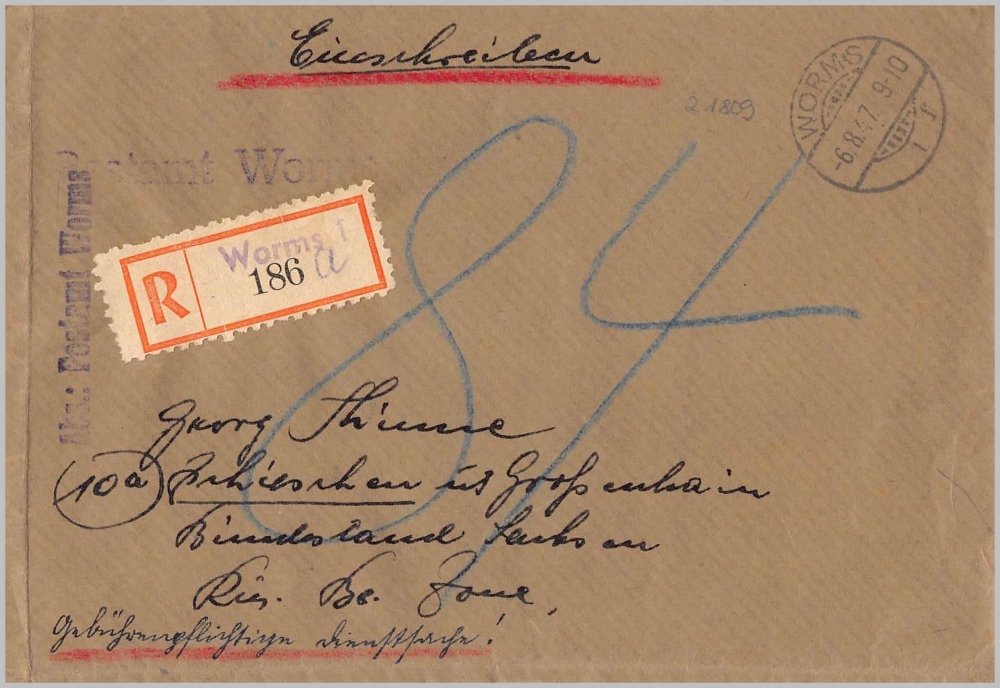 Einschreiben
WORMS
-6.8.47. 9-10
1 f
2 1809
Postamt Worms
Abs.: Postamt Worms
R
Worms 1
186 a
84
Georg Thieme
(10a) Zschieschen üb Großenhain
Bundesland Sachsen
Rus. Be. Zone,
Gebührenpflichtige Dienstsache!